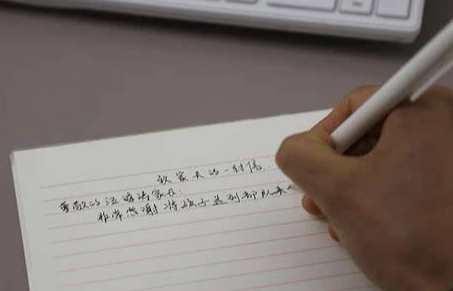 致家长的一封信
尊敬的 家长:
非常感谢 将孩子送到部队来